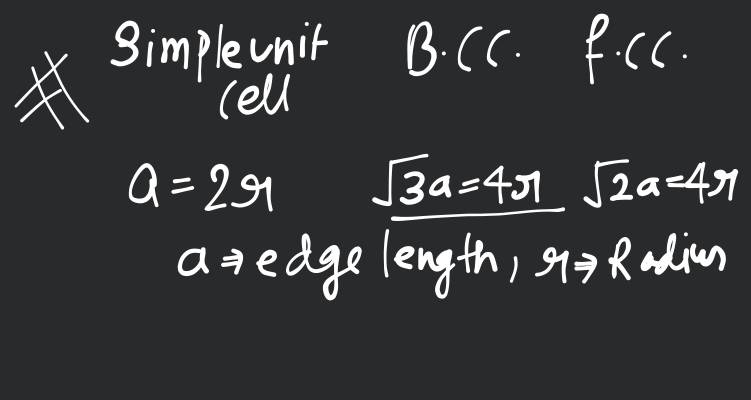 # Simple unit cell B.C.C. f.C.C.
a = 2r √3a = 4r √2a = 4r
a ⇒ edge length, r ⇒ Radius